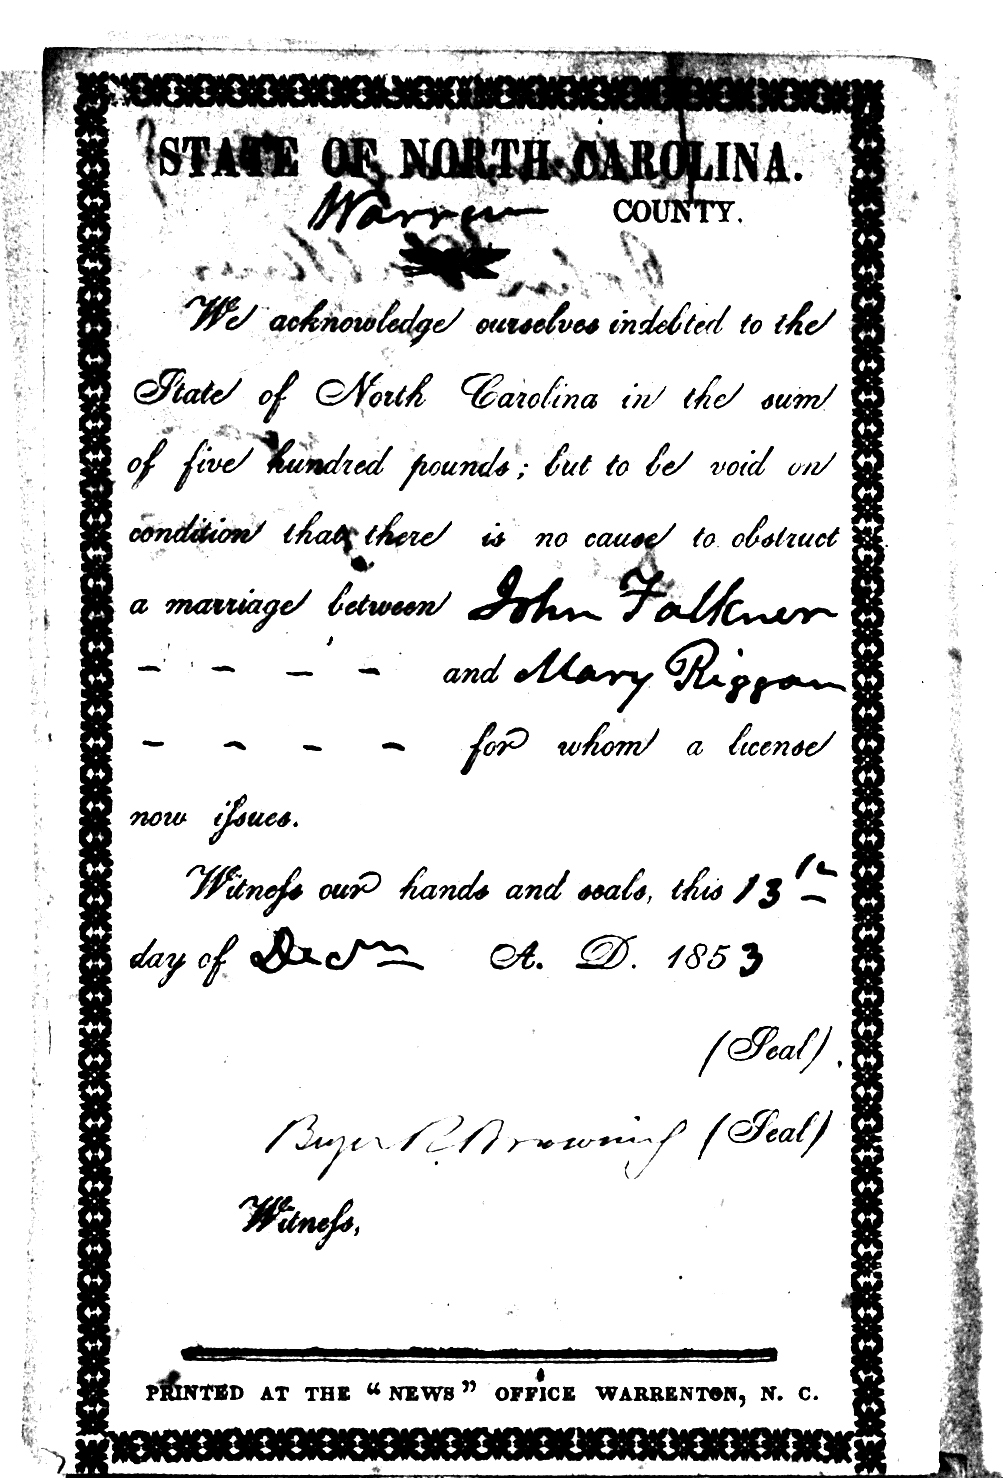 STATE OF NORTH CAROLINA.
Warren COUNTY.
We acknowledge ourselves indebted to the
State of North Carolina in the sum
of five hundred pounds; but to be void on
condition that there is no cause to obstruct
a marriage between John Falkner
- - - - and Mary Riggan
- - - - for whom a license
now issues.
Witness our hands and seals, this 13th
day of Decm A. D. 1853
(Seal).
R. Browning (Seal)
Witness,
PRINTED AT THE "NEWS" OFFICE WARRENTON, N. C.